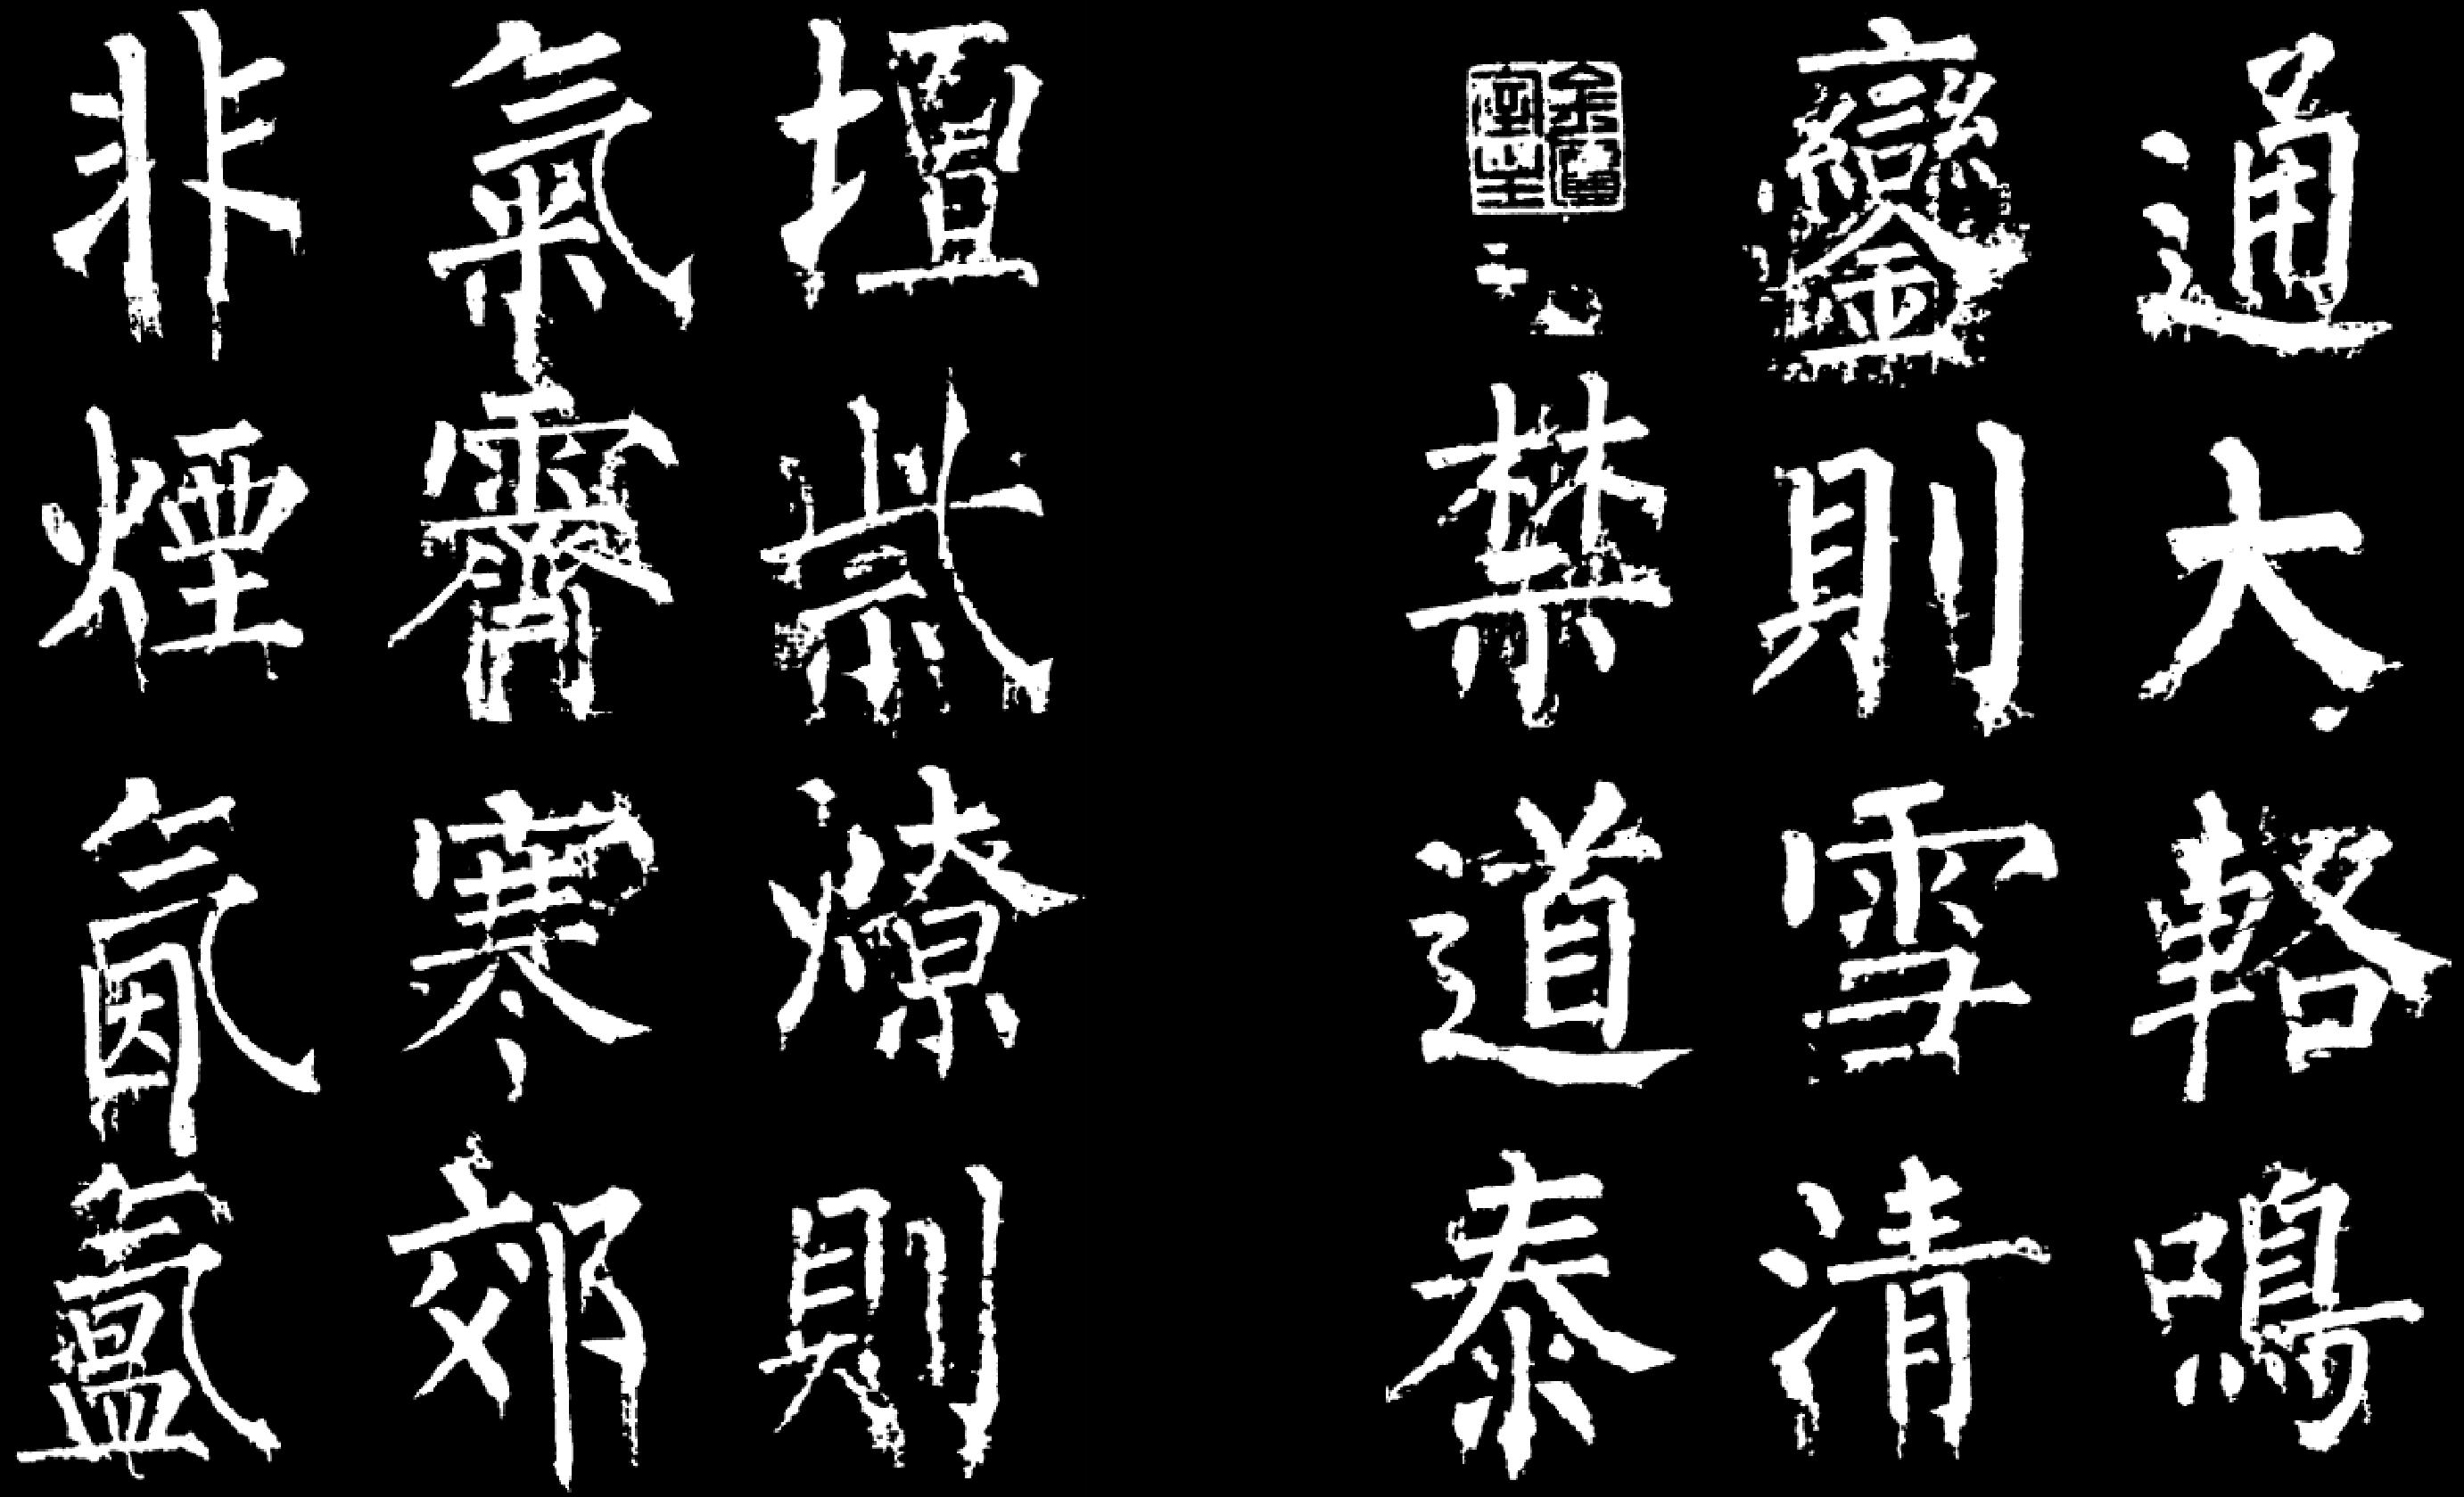 通大輅鳴
鑾則雪清
禁道泰
壇祡燎則
氣霽寒郊
非煙氤氳